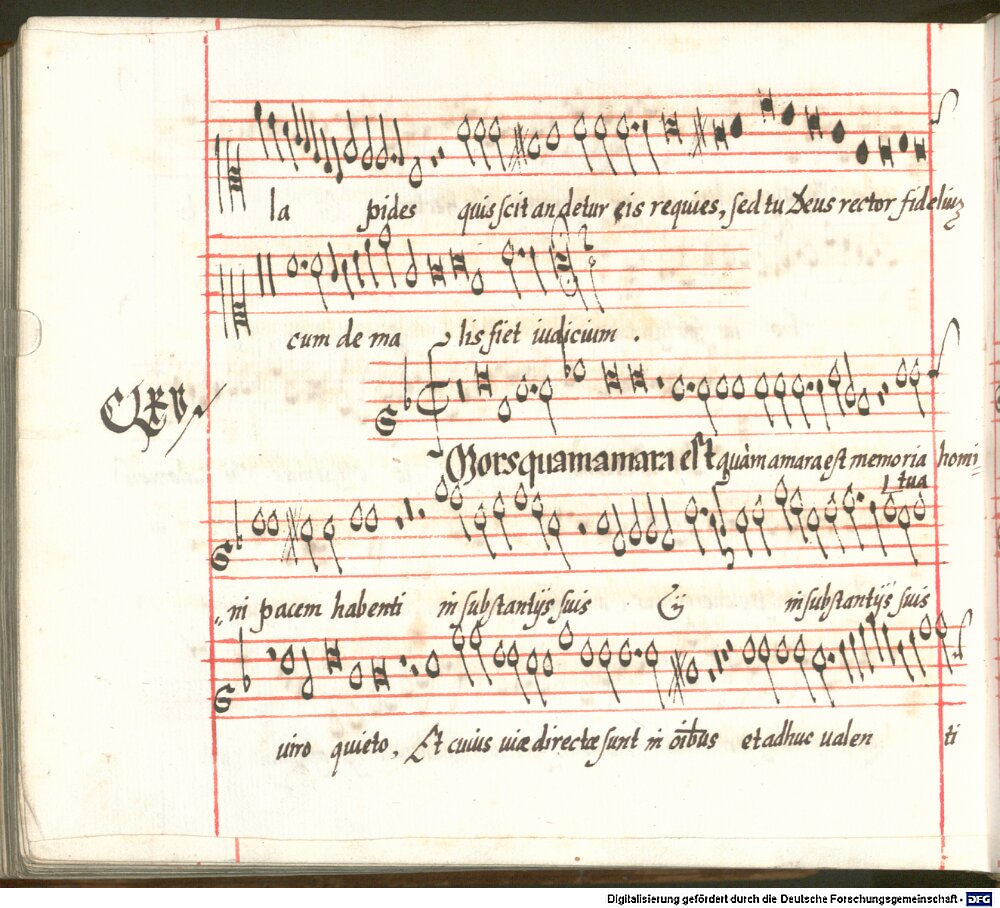 la pides quis scit an detur eis requies, sed tu Deus rector fideliuȝ
cum de ma lis fiet iudicium .
CLXV
Mors quam amara est quàm amara est memoria homi=
I tua
„ni pacem habenti in substantijs suis ij in substantijs suis
uiro quieto, Et cuius uiæ directæ sunt in oībus et adhuc ualen ti
Digitalisierung gefördert durch die Deutsche Forschungsgemeinschaft - DFG